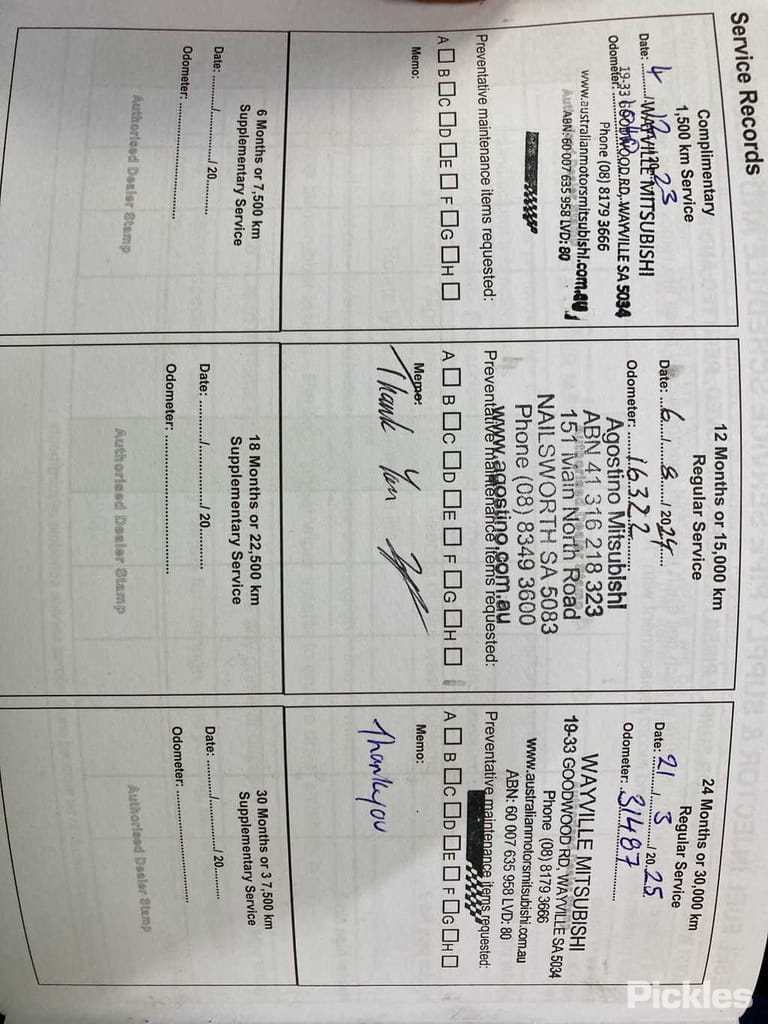 Service Records
Complimentary
1,500 km Service
Date: 4 / 12 / 2023
WAYVILLE MITSUBISHI
Odometer:
19-33 GOODWOOD RD, WAYVILLE SA 5034
Phone (08) 8179 3666
www.australianmotorsmitsubishi.com.au
ABN: 60 007 635 958 LVD: 80
Preventative maintenance items requested:
A B C D E F G H
Memo:
6 Months or 7,500 km
Supplementary Service
Date: ........./............./ 20.........
Odometer: ................................
Authorised Dealer Stamp
12 Months or 15,000 km
Regular Service
Date: ...6.../...8.../ 2024....
Odometer: ......16322......
Agostino Mitsubishi
ABN 41 316 218 323
151 Main North Road
NAILSWORTH SA 5083
Phone (08) 8349 3600
www.agostino.com.au
Preventative maintenance items requested:
A B C D E F G H
Memo:
Thank You
18 Months or 22,500 km
Supplementary Service
Date: ........./............./ 20..........
Odometer: ....................................
Authorised Dealer Stamp
24 Months or 30,000 km
Regular Service
Date: 21 / 3 / 20.25
Odometer: 31487
WAYVILLE MITSUBISHI
19-33 GOODWOOD RD, WAYVILLE SA 5034
Phone (08) 8179 3666
www.australianmotorsmitsubishi.com.au
ABN: 60 007 635 958 LVD: 80
Preventative maintenance items requested:
A B C D E F G H
Memo:
Thankyou
30 Months or 3 7,500 km
Supplementary Service
Date: ........./............./ 20.........
Odometer: ................................
Authorised Dealer Stamp
Pickles